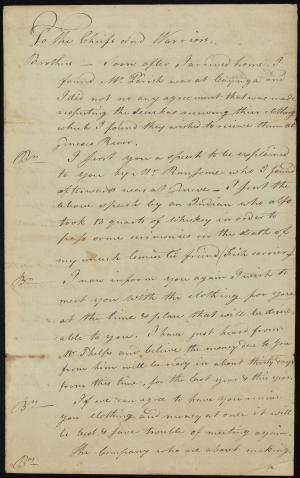 To the Chiefs and Warriors.
Brothers — Soon after I arrived home. I
found Mr Parish was at Cayuga and
I did not no any agreement that was made
respecting the Senekas receiving their clothing
which I found they wished to receive them at
Genesee River.
Brs I sent you a speech to be explained
to you by Mr Ransome who I found
afterwards was at Geneve — I sent the
above speech by an Indian who also
took 13 quarts of Whiskey in order to
pass some cerimonies on the death of
my much lamented friend (Fish carrier)
Brs I now inform you again I wish to
meet you with the clothing for you
at the time & place that will be desir
able to you. I have just heard from
Mr Phelps and believe the money due to you
from him will be ready in about thirty days
from this time, for the last year & this year
Brs If we can agree to have you receive
you clothing and money at once it will
be best & save trouble of meeting again.
Brs The Company who are about making
a